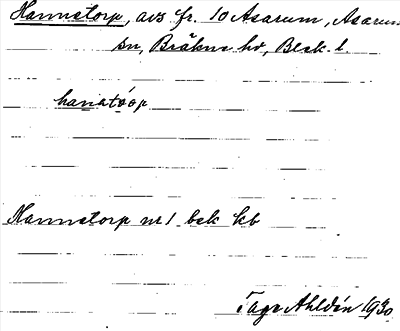 Hannetorp, avs fr. 10 Asarum, Asarum
sn, Bräkne hd, Blek. l
hanatóop
Hannetorp nr 1 bek kb
Tage Ahldén 1930